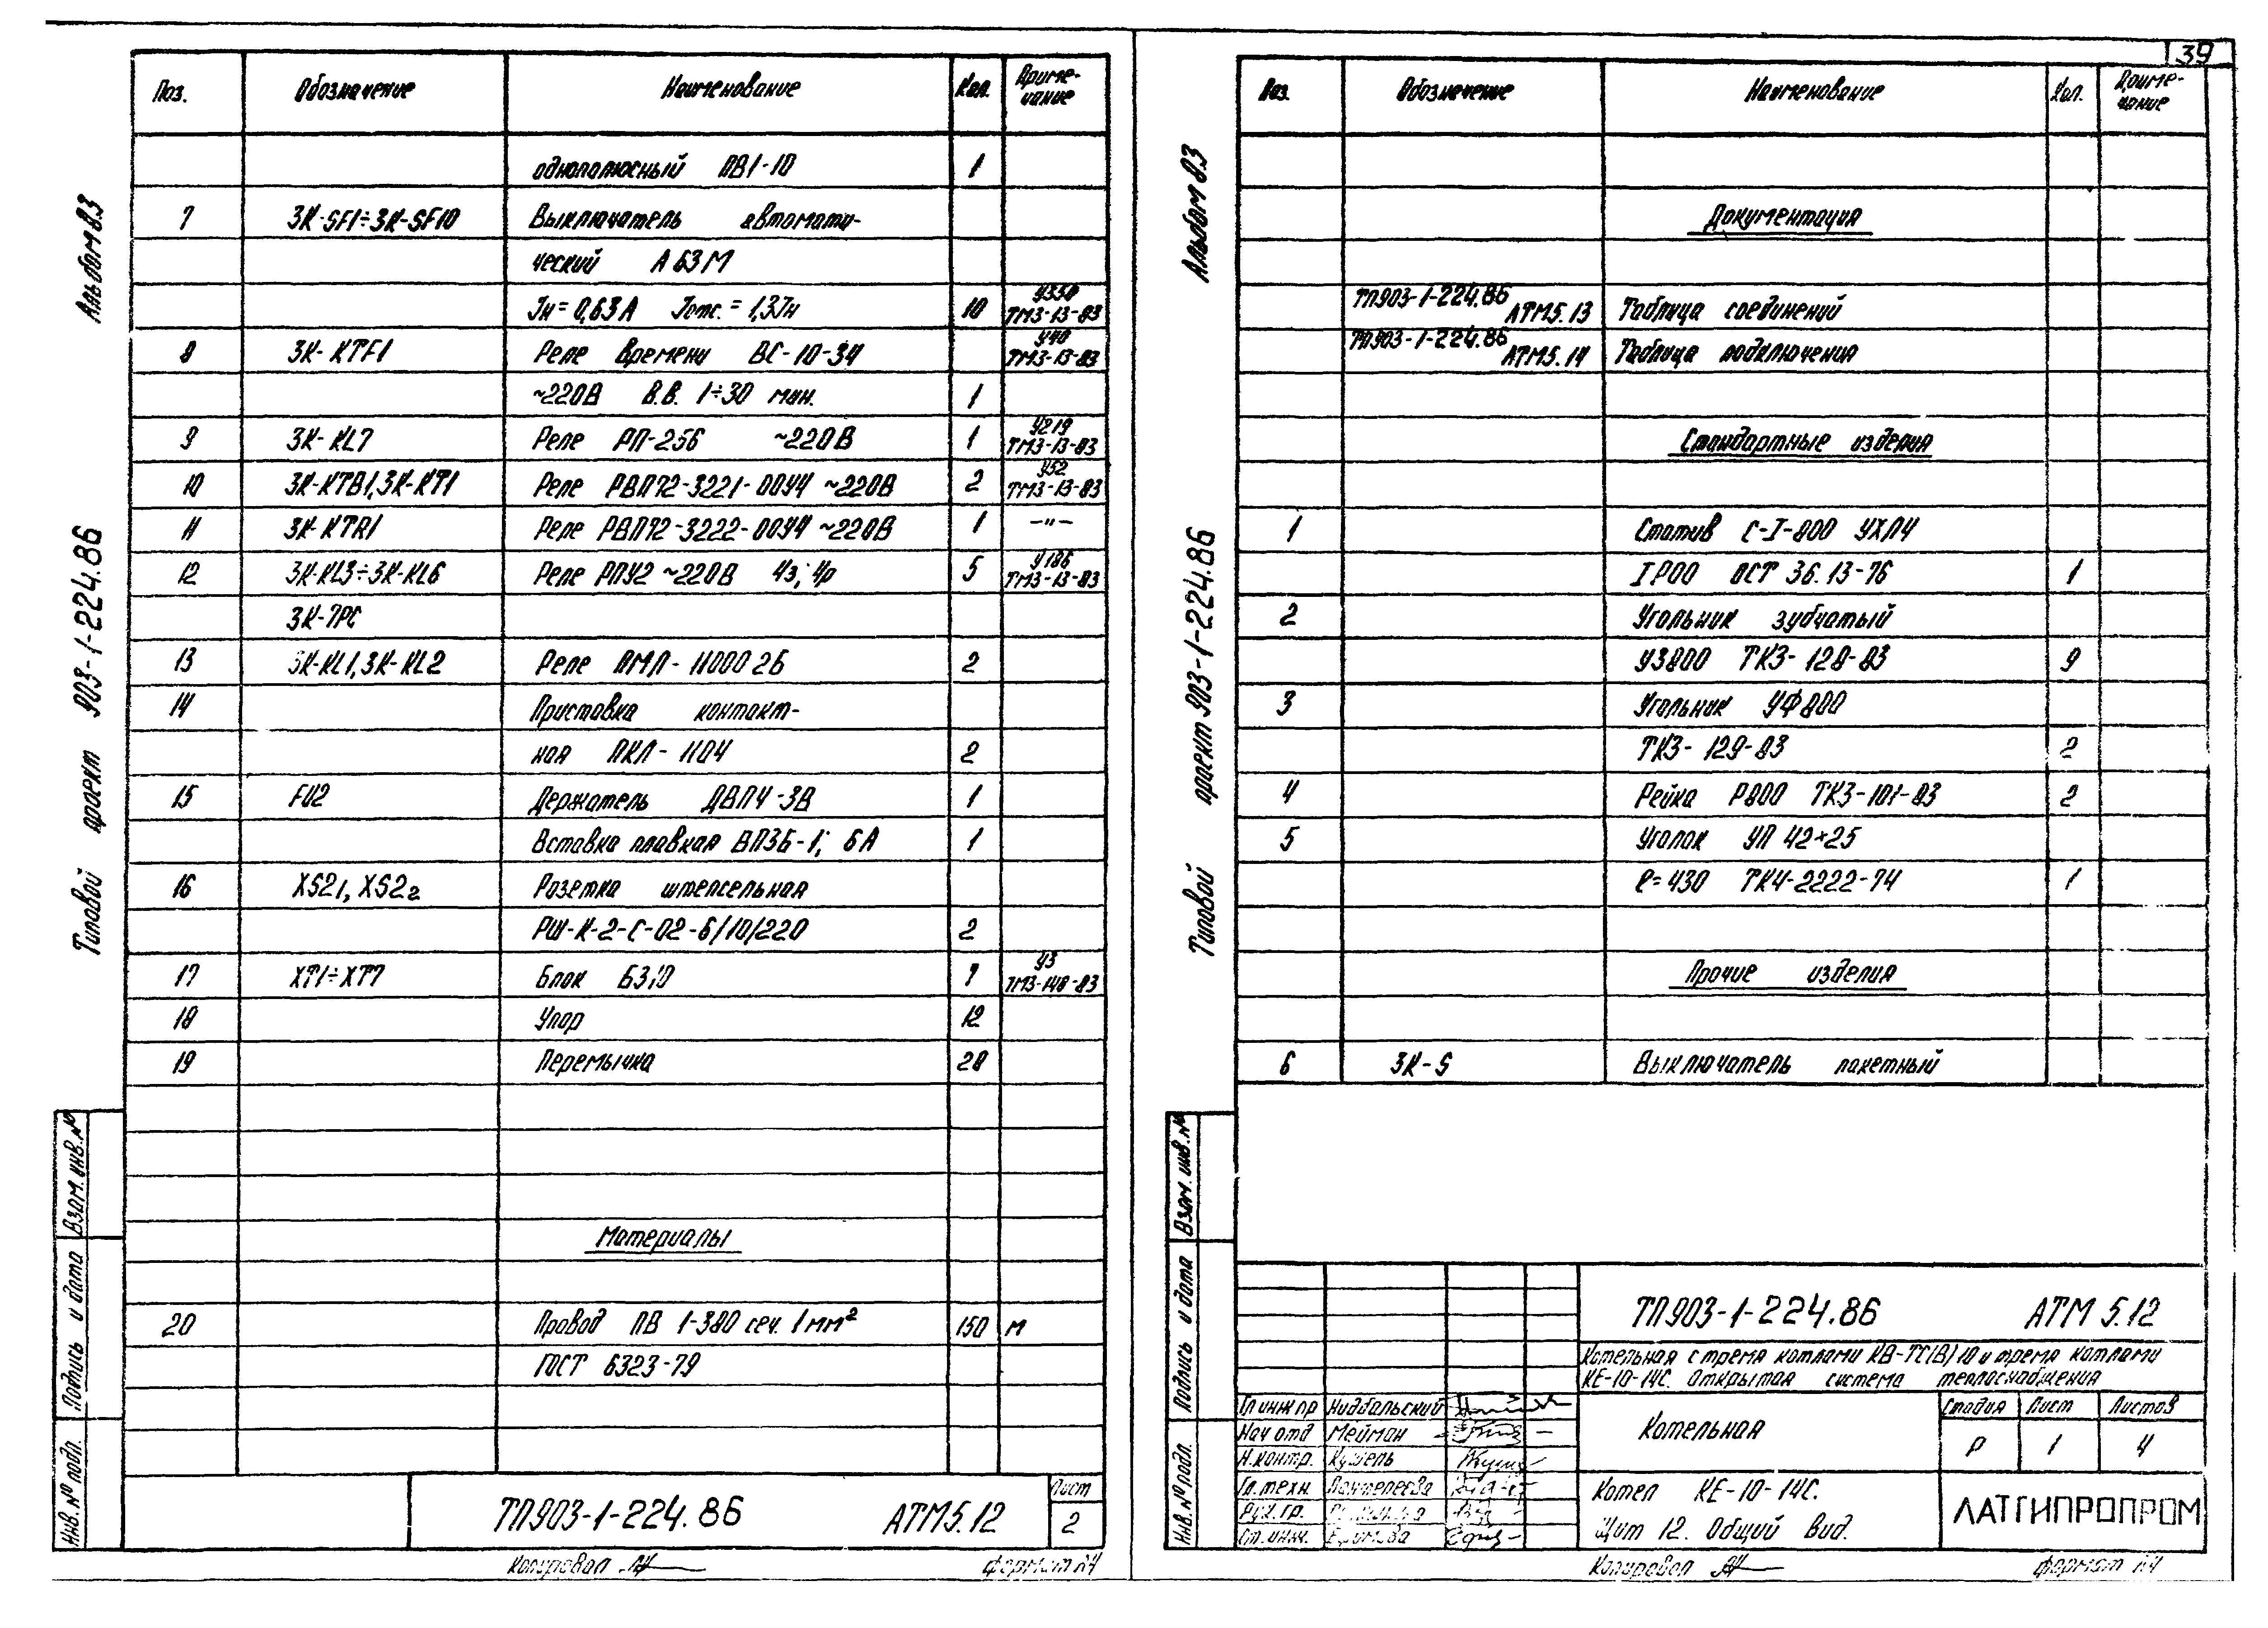 39
Альбом 8.3
Типовой проект 903-1-224.86
Взам. инв. №
Подпись и дата
Инв. № подл.
Поз. Обозначение Наименование Кол. Приме-
чание
однополюсный ПВ1-10 1
7 3К-SF1÷3К-SF10 Выключатель автомати-
ческий А63М
Jн = 0,63А Jотс. = 1,3Jн 10 У350 ТМ3-13-83
8 3К-КТF1 Реле времени ВС-10-34 У40 ТМ3-13-83
~220В В.В. 1÷30 мин. 1
9 3К-KL7 Реле РП-256 ~220В 1 У219 ТМ3-13-83
10 3К-КТВ1, 3К-КТ1 Реле РВП72-3221-00У4 ~220В 2 У52 ТМ3-13-83
11 3К-КТR1 Реле РВП72-3222-00У4 ~220В 1 -"-
12 3К-KL3÷3К-KL6 Реле РПУ2 ~220В 4з; 4р 5 У186 ТМ3-13-83
3К-7РС
13 3К-KL1, 3К-KL2 Реле ПМЛ-11000 2Б 2
14 Приставка контакт-
ная ПКЛ-1104 2
15 FU2 Держатель ДВП4-3В 1
Вставка плавкая ВП3Б-1; 6А 1
16 XS21, XS22 Розетка штепсельная
РШ-К-2-С-02-6/10/220 2
17 ХТ1÷ХТ7 Блок Б3,10 7 У3 ТМ3-148-83
18 Упор 12
19 Перемычка 28
Материалы
20 Провод ПВ 1-380 сеч. 1 мм² 150 м
ГОСТ 6323-79
ТП903-1-224.86 АТМ5.12 Лист
2
Копировал формат А4
Альбом 8.3
Типовой проект 903-1-224.86
Взам. инв. №
Подпись и дата
Инв. № подл.
Поз. Обозначение Наименование Кол. Приме-
чание
Документация
ТП903-1-224.86
АТМ5.13 Таблица соединений
ТП903-1-224.86
АТМ5.14 Таблица подключения
Стандартные изделия
1 Статив С-I-800 УХЛ4
IР00 ОСТ 36.13-76 1
2 Угольник зубчатый
УЗ800 ТК3-128-83 9
3 Угольник УФ800
ТК3-129-83 2
4 Рейка Р800 ТК3-101-83 2
5 Уголок УП 42×25
ℓ=430 ТК4-2222-74 1
Прочие изделия
6 3К-S Выключатель пакетный
ТП903-1-224.86 АТМ 5.12
Котельная с тремя котлами КВ-ТС(В)10 и тремя котлами
КЕ-10-14С. Открытая система теплоснабжения
Гл инж пр Ниддальский
Нач отд Мейман
Н.контр. Кушель
Гл.техн. Пантелеева
Рук.гр.
Ст.инж. Ефимова
Котельная
Стадия Лист Листов
Р 1 4
Котел КЕ-10-14С.
Щит 12. Общий вид.
ЛАТГИПРОПРОМ
Копировал формат А4